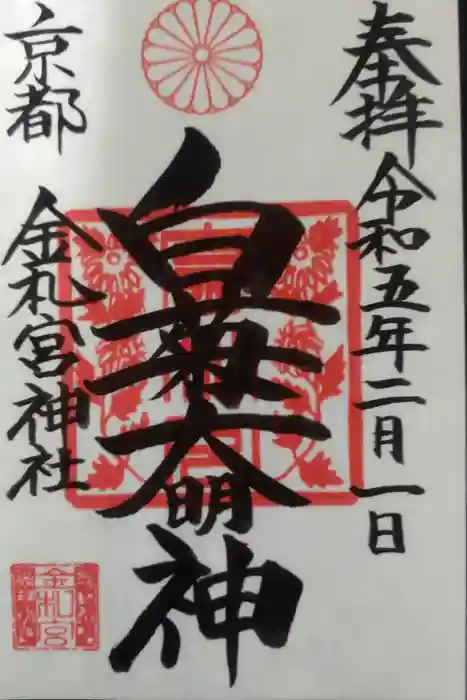 奉拝
令和五年二月一日
白菊大明神
京都
金札宮神社
金札宮